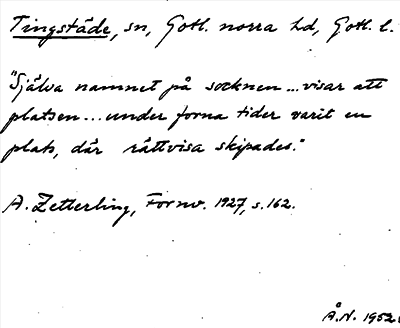 Tingstäde, sn, Gotl. norra hd, Gotl. l.
"Själva namnet på socknen ... visar att
platsen ... under forna tider varit en
plats, där rättvisa skipades."
A. Zetterling, Fornv. 1927, s. 162.
Å.N. 1952